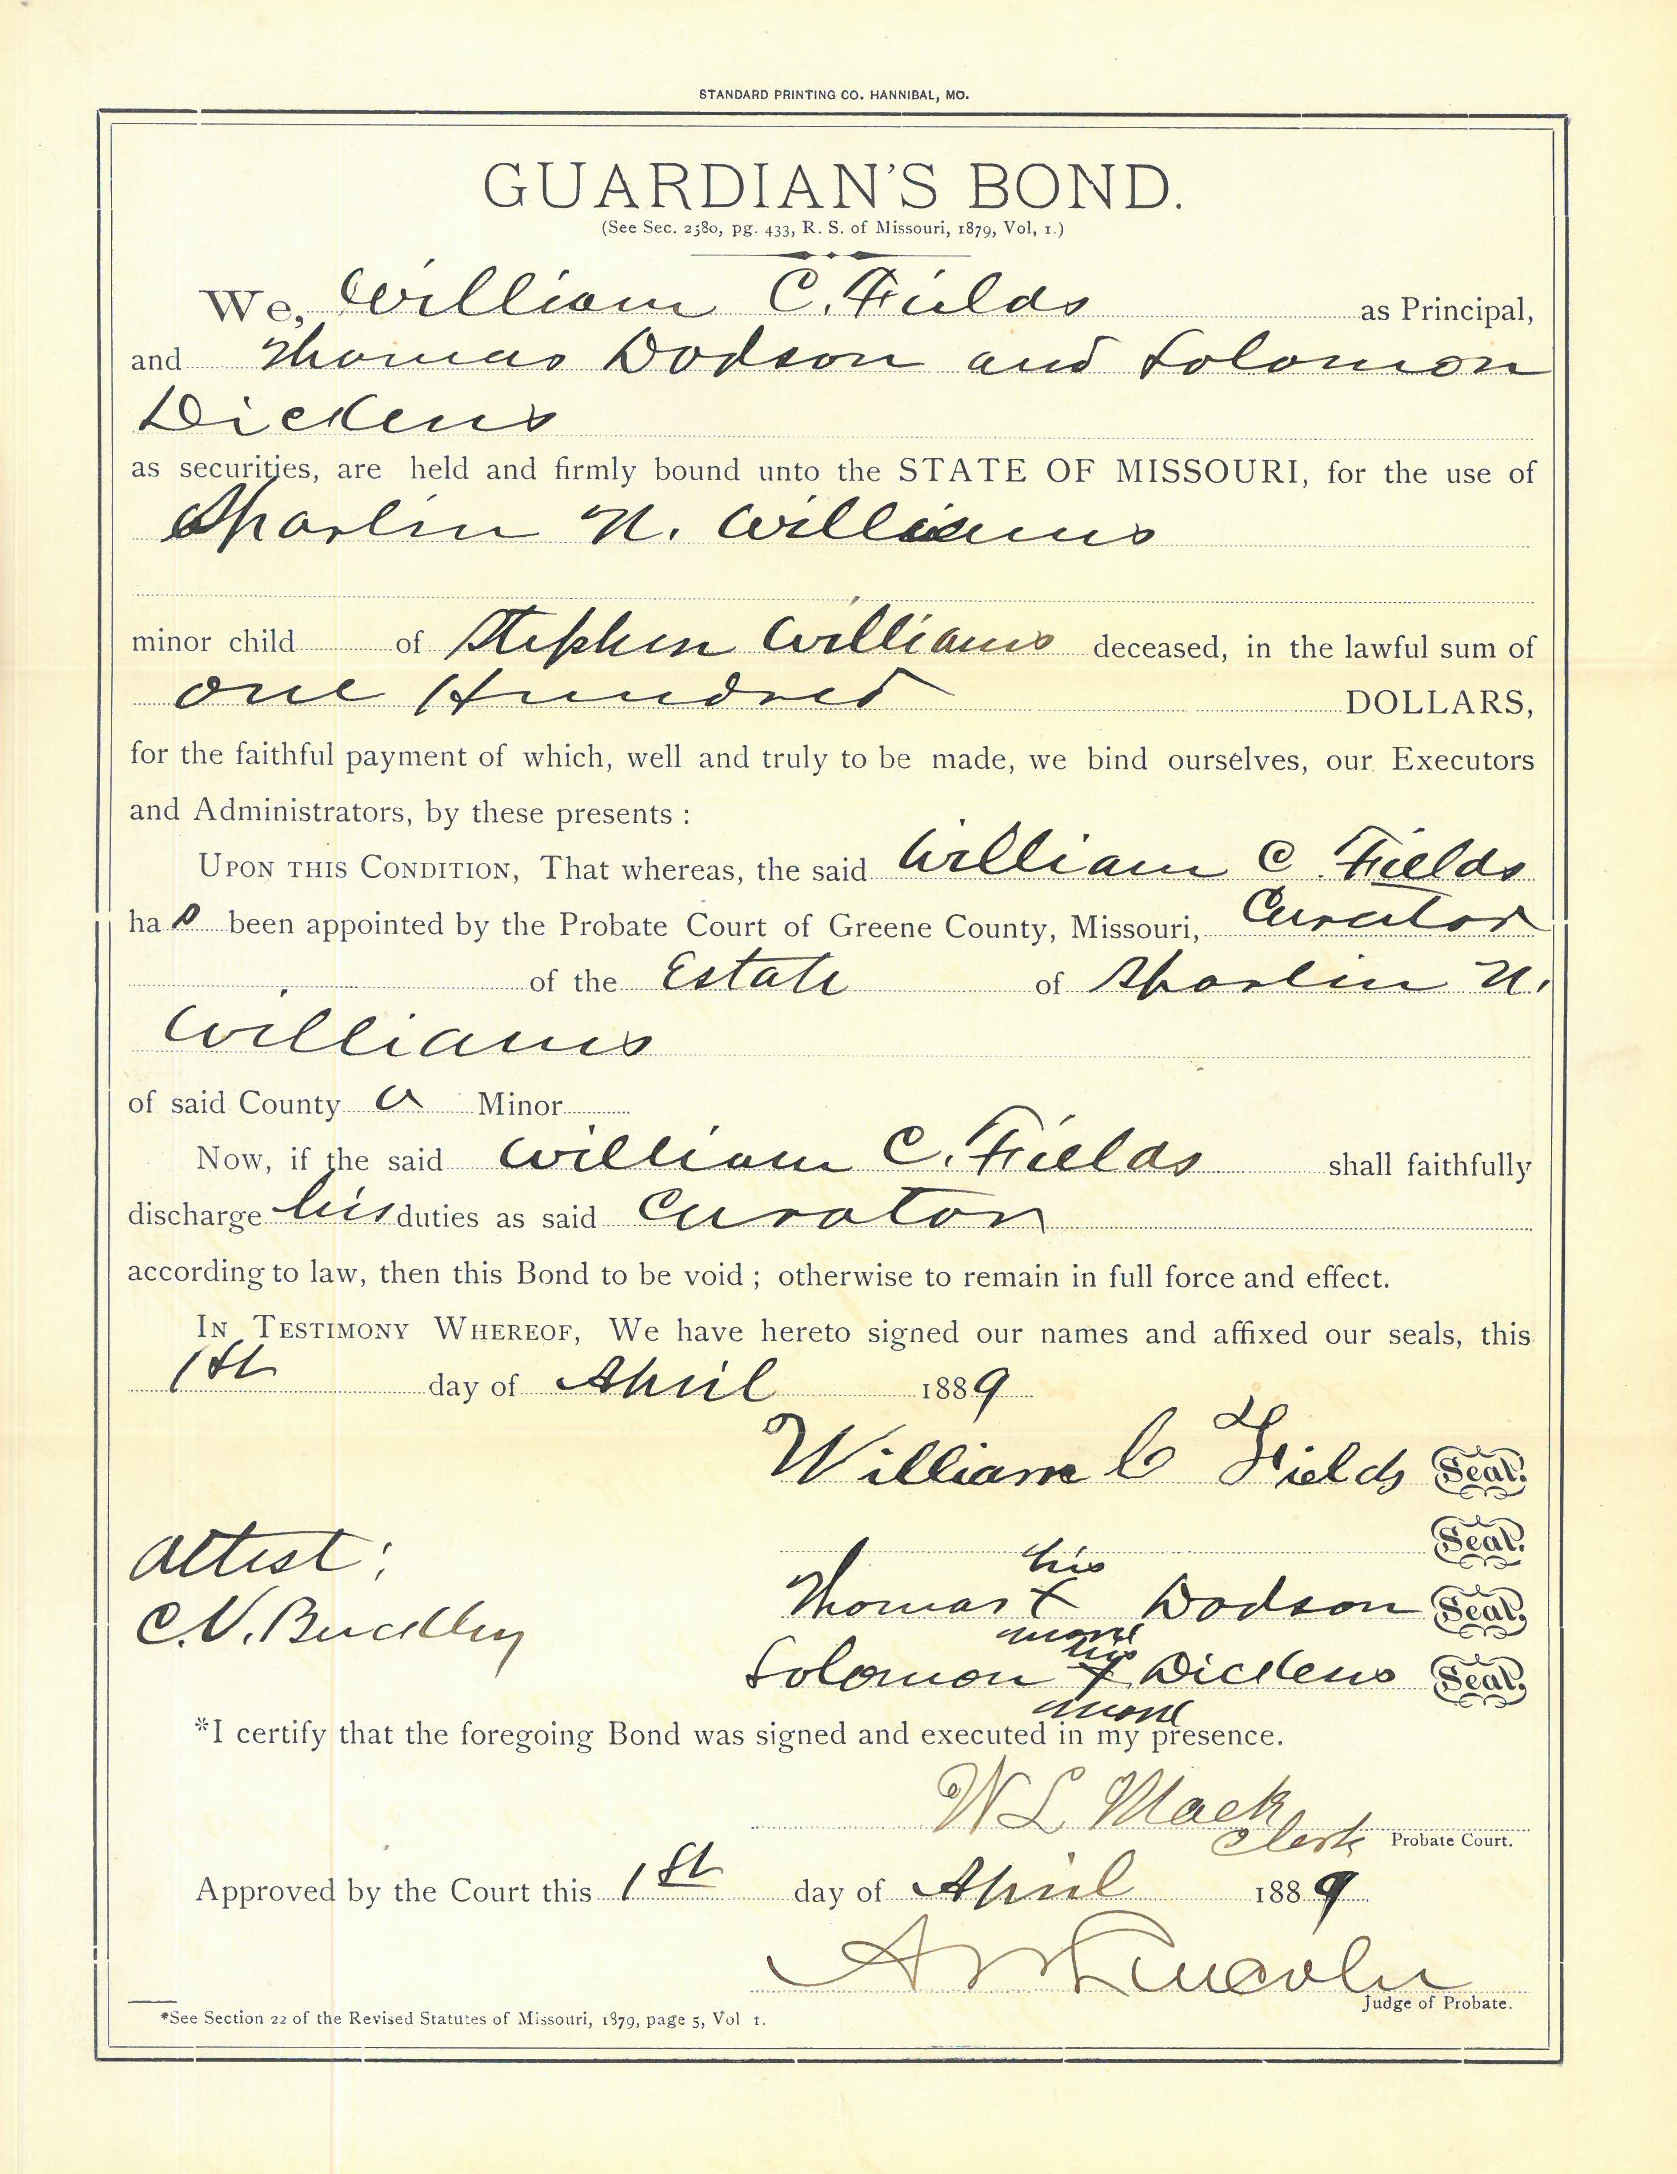 STANDARD PRINTING CO. HANNIBAL, MO.
GUARDIAN'S BOND.
(See Sec. 2580, pg. 433, R. S. of Missouri, 1879, Vol, 1.)
We, William C. Fields as Principal,
and Thomas Dodson and Solomon
Dickens
as securities, are held and firmly bound unto the STATE OF MISSOURI, for the use of
Sharlin N. Williams
minor child of Stephen Williams deceased, in the lawful sum of
One Hundred DOLLARS,
for the faithful payment of which, well and truly to be made, we bind ourselves, our Executors
and Administrators, by these presents :
UPON THIS CONDITION, That whereas, the said William C. Fields
has been appointed by the Probate Court of Greene County, Missouri, Curator
of the Estate of Sharlin N.
Williams
of said County a Minor
Now, if the said William C. Fields shall faithfully
discharge his duties as said Curator
according to law, then this Bond to be void ; otherwise to remain in full force and effect.
IN TESTIMONY WHEREOF, We have hereto signed our names and affixed our seals, this
1st day of April 1889
William C Fields Seal.
Seal.
Attest:
his
Thomas X Dodson Seal.
mark
C.V. Buckley
his
Solomon X Dickens Seal.
mark
*I certify that the foregoing Bond was signed and executed in my presence.
W L Mack
Clerk Probate Court.
Approved by the Court this 1st day of April 1889
Lincoln
Judge of Probate.
*See Section 22 of the Revised Statutes of Missouri, 1879, page 5, Vol 1.